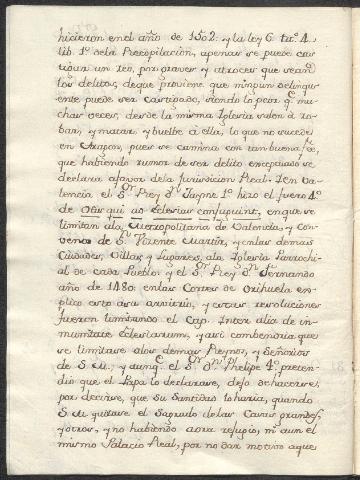 hicieron en el año de 1502. y la ley 6 tit.º 4.
lib. 1.º de la Recopilacion, apenas se puede cas
tigar un reo, por graves y atroces que sean
los delitos, de que proviene que ningun delinqu
ente puede ser castigado, siendo lo peor q.e mu
chas veces, desde la misma Iglesia salen á ro
bar, y matar, y buelbe á ella, lo que no sucede
en Aragon, pues se camina con tan buena fee,
que habiendo rumor de ser delito exceptuado se
declara a favor de la jurisdicion Real. Y en Va
lencia el S.or Rey d.n Jayme 1.º hizo el fuero 4.º
de Ostir qui ad Eclesias confugiunt, en que se
limitan a la Metropolitana de Valencia, y con
vento de S.n Vizente Martir, y en las demas
Ciudades, Villas y Lugares, a la Iglesia Parrochi
al de cada Pueblo; y el S.or Rey d.n Fernando
año de 1480. en las Cortes de Orihuela
y otras resoluciones
fueron limitando el Cap. Inter alia de in
munitate Eclesiarum, y asi combendria que
se limitase a los demas Reynos, y Señorios
de S.M., y aunq.e el S.or d.n Phelipe 4.º preten
dió que el Papa lo declarase, dejo de hacerse,
por decirse, que su Santidad lo haria, quando
S.M. quitase el Sagrado de las Casas grandes,
y otros, y no habiendo aora refugio, ni aun el
mismo Palacio Real, por no dar motivo a que